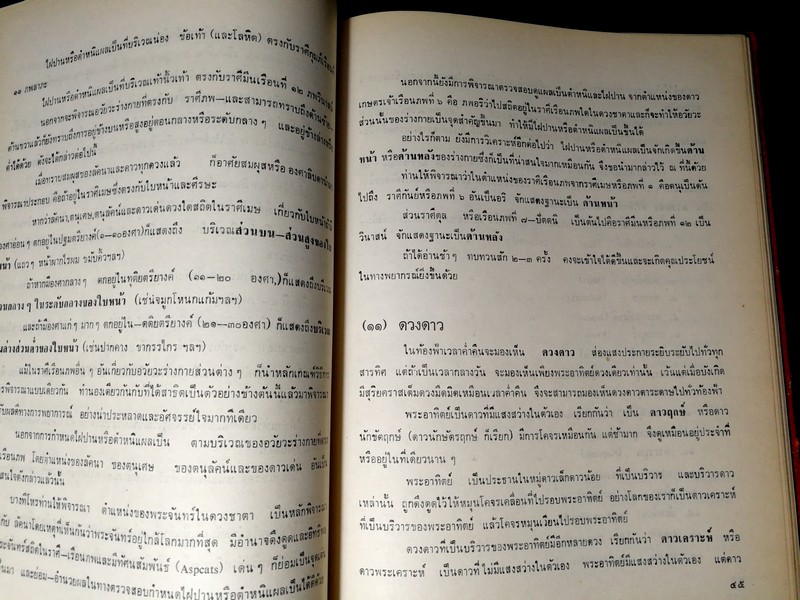 ไฝปานหรือตำหนิแผลเป็นที่บริเวณน่อง ข้อเท้า (และโลหิต) ตรงกับราศีกุมภ์เรือนที่
๑๑ ภพลาภะ
ไฝปานหรือตำหนิแผลเป็นที่บริเวณเท้านิ้วเท้า ตรงกับราศีมีนเรือนที่ ๑๒ ภพวินาสน์
นอกจากจะพิจารณาอวัยวะร่างกายที่ตรงกับ ราศีภพ—และสามารถทราบถึงด้านซ้าย—
ด้านขวาแล้วก็ยังทราบถึงการอยู่ข้างบนหรือสูงอยู่ตอนกลางหรือระดับกลาง ๆ และอยู่ข้างล่างหรือ
ต่ำได้ด้วย ดังจะได้กล่าวต่อไปนี้
เมื่อทราบสมผุสของลัคนาและดาวทุกดวงแล้ว ก็อาศัยสมผุสหรือ องศาลิบดา
พิจารณาประกอบ คือถ้าอยู่ในราศีเมษซึ่งตรงกับใบหน้าและศีรษะ
หากว่าลัคนา,ตนุเศษ,ตนุลัคน์และดาวเด่นดวงใดสถิตในราศีเมษ เกี่ยวกับใบหน้าถ้ามี
องศาอ่อน ๆ ตกอยู่ในปฐมตรียางค์(๑—๑๐องศา)ก็แสดงถึง บริเวณส่วนบน—ส่วนสูงของใบ
หน้า (แถว ๆ หน้าผากไรผม ขมับคิ้วฯลฯ)
ถ้าหากมีองศากลาง ๆ ตกอยู่ในทุติยตรียางค์ (๑๑—๒๐ องศา,)ก็แสดงถึงบริเวณ
ส่วนกลาง ๆ ในระดับกลางของใบหน้า (เช่นจมูกโหนกแก้มฯลฯ)
และถ้ามีองศาแก่ ๆ มาก ๆ ตกอยู่ใน—ตติยตรียางค์ (๒๑—๓๐องศา) ก็แสดงถึงบริเวณ
ล่างส่วนต่ำของใบหน้า (เช่นปากคาง ขากรรไกร ฯลฯ)
แม้ในราศีเรือนภพอื่น ๆ อันเกี่ยวกับอวัยวะร่างกายส่วนต่าง ๆ ก็นำหลักเกณฑ์วิธีการ
พิจารณาแบบเดียวกัน ทำนองเดียวกันกับที่ได้สาธิตเป็นตัวอย่างข้างต้นนี้แล้วมาพิจารณา
รับผลดีทางการพยากรณ์ อย่างน่าประหลาดและอัศจรรย์ใจมากทีเดียว
นอกจากการกำหนดไฝปานหรือตำหนิแผลเป็น ตามบริเวณของอวัยวะร่างกายที่ตรง
เรือนภพ โดยตำแหน่งของลัคนา ของตนุเศษ ของตนุลัคน์และของดาวเด่น อันเป็น
สนใจดังกล่าวแล้วนั้น
บางทีโหรท่านให้พิจารณา ตำแหน่งของพระจันทร์ในดวงชาตา เป็นหลักพิจารณา
กับ ลัคนาโดยเหตุที่เห็นกันว่าพระจันทร์อยู่ใกล้โลกมากที่สุด มีอำนาจดึงดูดและอิทธิพล
พระจันทร์สถิตในราศี—เรือนภพและมีทัศนสัมพันธ์ (Aspcats) เด่น ๆ ก็ย่อมเป็นจุดเด่น
และ ย่อม—อำนวยผลในทางตรวจสอบกำหนดไฝปานหรือตำหนิแผลเป็นได้ดีด้วย
นอกจากนี้ยังมีการพิจารณาตรวจสอบดูแผลเป็นตำหนิและไฝปาน จากตำแหน่งของดาว
เกษตรเจ้าเรือนภพที่ ๖ คือ ภพอริว่าไปสถิตอยู่ในราศีเรือนภพใดในดวงชาตาและก็จะทำให้อวัยวะ
ส่วนนั้นของร่างกายเป็นจุดสำคัญขึ้นมา ทำให้มีไฝปานหรือตำหนิแผลเป็นขึ้นได้
อย่างไรก็ตาม ยังมีการวิเคราะห์อีกต่อไปว่า ไฝปานหรือตำหนิแผลเป็นจักเกิดขึ้นด้าน
หน้า หรือด้านหลังของร่างกายซึ่งก็เป็นที่น่าสนใจมากเหมือนกัน จึงขอนำมากล่าวไว้ ณ ที่นี้ด้วย
ท่านให้พิจารณาว่าในตำแหน่งของราศีเรือนภพจากราศีเมษหรือภพที่ ๑ คือตนุเป็นต้น
ไปถึง ราศีกันย์หรือภพที่ ๖ อันเป็นอริ จักแสดงฐานะเป็น ด้านหน้า
ส่วนราศีตุล หรือเรือนภพที่ ๗—ปัตตนิ เป็นต้นไปคือราศีมีนหรือภพที่ ๑๒ เป็น
วินาสน์ จักแสดงฐานะเป็นด้านหลัง
ถ้าได้อ่านช้า ๆ ทบทวนสัก ๒—๓ ครั้ง คงจะเข้าใจได้ดีขึ้นและจะเกิดคุณประโยชน์
ในทางพยากรณ์ยิ่งขึ้นด้วย
(๑๑) ดวงดาว
ในท้องฟ้าเวลาค่ำคืนจะมองเห็น ดวงดาว ส่องแสงประกายระยิบระยับไปทั่วทุก
สารทิศ แต่ถ้าเป็นเวลากลางวัน จะมองเห็นเพียงพระอาทิตย์ดวงเดียวเท่านั้น เว้นแต่เมื่อบังเกิด
มีสุริยคราสเต็มดวงมืดมิดเหมือนเวลาค่ำคืน จึงจะสามารถมองเห็นดวงดาวดาระดาษไปทั่วท้องฟ้า
พระอาทิตย์เป็นดาวที่มีแสงสว่างในตัวเอง เรียกกันว่า เป็น ดาวฤกษ์ หรือดาว
นักขัตฤกษ์ (ดาวนักษัตรฤกษ์ ก็เรียก) มีการโคจรเหมือนกัน แต่ช้ามาก จึงดูเหมือนอยู่ประจำที่
หรืออยู่ในที่เดียวนาน ๆ
พระอาทิตย์ เป็นประธานในหมู่ดาวเล็กดาวน้อย ที่เป็นบริวาร และบริวารดาว
เหล่านั้น ถูกดึงดูดไว้ให้หมุนโคจรเคลื่อนที่ไปรอบพระอาทิตย์ อย่างโลกของเราก็เป็นดาวเคราะห์
ที่เป็นบริวารของพระอาทิตย์ แล้วโคจรหมุนเวียนไปรอบพระอาทิตย์
ดวงดาวที่เป็นบริวารของพระอาทิตย์มีอีกหลายดวง เรียกกันว่า ดาวเคราะห์ หรือ
ดาวพระเคราะห์ เป็นดาวที่ไม่มีแสงสว่างในตัวเอง พระอาทิตย์มีแสงสว่างในตัวเอง แต่ดาว
๔๕